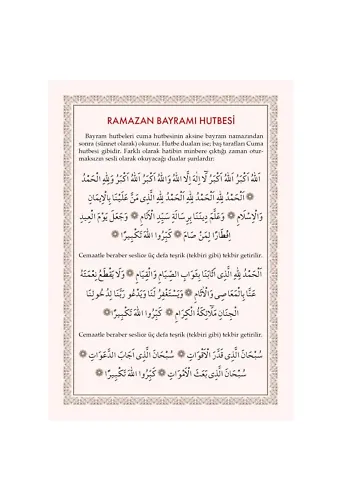 RAMAZAN BAYRAMI HUTBESİ
Bayram hutbeleri cuma hutbesinin aksine bayram namazından
sonra (sünnet olarak) okunur. Hutbe duaları ise; baş tarafları Cuma
hutbesi gibidir. Farklı olarak hatibin minbere çıktığı zaman otur-
maksızın sesli olarak okuyacağı dualar şunlardır:
اَللهُ اَكْبَرُ اَللهُ اَكْبَرُ لَا اِلٰهَ اِلَّا اللهُ وَاللهُ اَكْبَرُ اَللهُ اَكْبَرُ وَلِلّٰهِ الْحَمْدُ
اَلْحَمْدُ لِلّٰهِ اَلْحَمْدُ لِلّٰهِ اَلْحَمْدُ لِلّٰهِ الَّذِى مَنَّ عَلَيْنَا بِالْاِيمَانِ
وَالْاِسْلَامِ ❁ وَعَلَّمَ دِينَنَا بِرِسَالَةِ سَيِّدِ الْاَنَامِ ❁ وَجَعَلَ يَوْمَ الْعِيدِ
اِفْطَارًا لِمَنْ صَامَ ❁ كَبِّرُوا اللهَ تَكْبِيرًا ❁
Cemaatle beraber seslice üç defa teşrik (tekbiri gibi) tekbir getirilir.
اَلْحَمْدُ لِلّٰهِ الَّذِى اَثَابَنَا بِثَوَابِ الصِّيَامِ وَالْقِيَامِ ❁ وَلَا يَقْطَعُ نِعْمَتَهُ
عَنَّا بِالْمَعَاصِى وَالْاٰثَامِ ❁ وَيَسْتَغْفِرُ لَنَا وَيَدْعُو رَبَّنَا لِدُخُولِنَا
الْجِنَانَ مَلٰائِكَةُ الْكِرَامِ ❁ كَبِّرُوا اللهَ تَكْبِيرًا ❁
Cemaatle beraber seslice üç defa teşrik (tekbiri gibi) tekbir getirilir.
سُبْحَانَ الَّذِى قَدَّرَ الْاَقْوَاتَ ❁ سُبْحَانَ الَّذِى اَجَابَ الدَّعَوَاتِ ❁
سُبْحَانَ الَّذِى بَعَثَ الْاَمْوَاتَ ❁ كَبِّرُوا اللهَ تَكْبِيرًا ❁